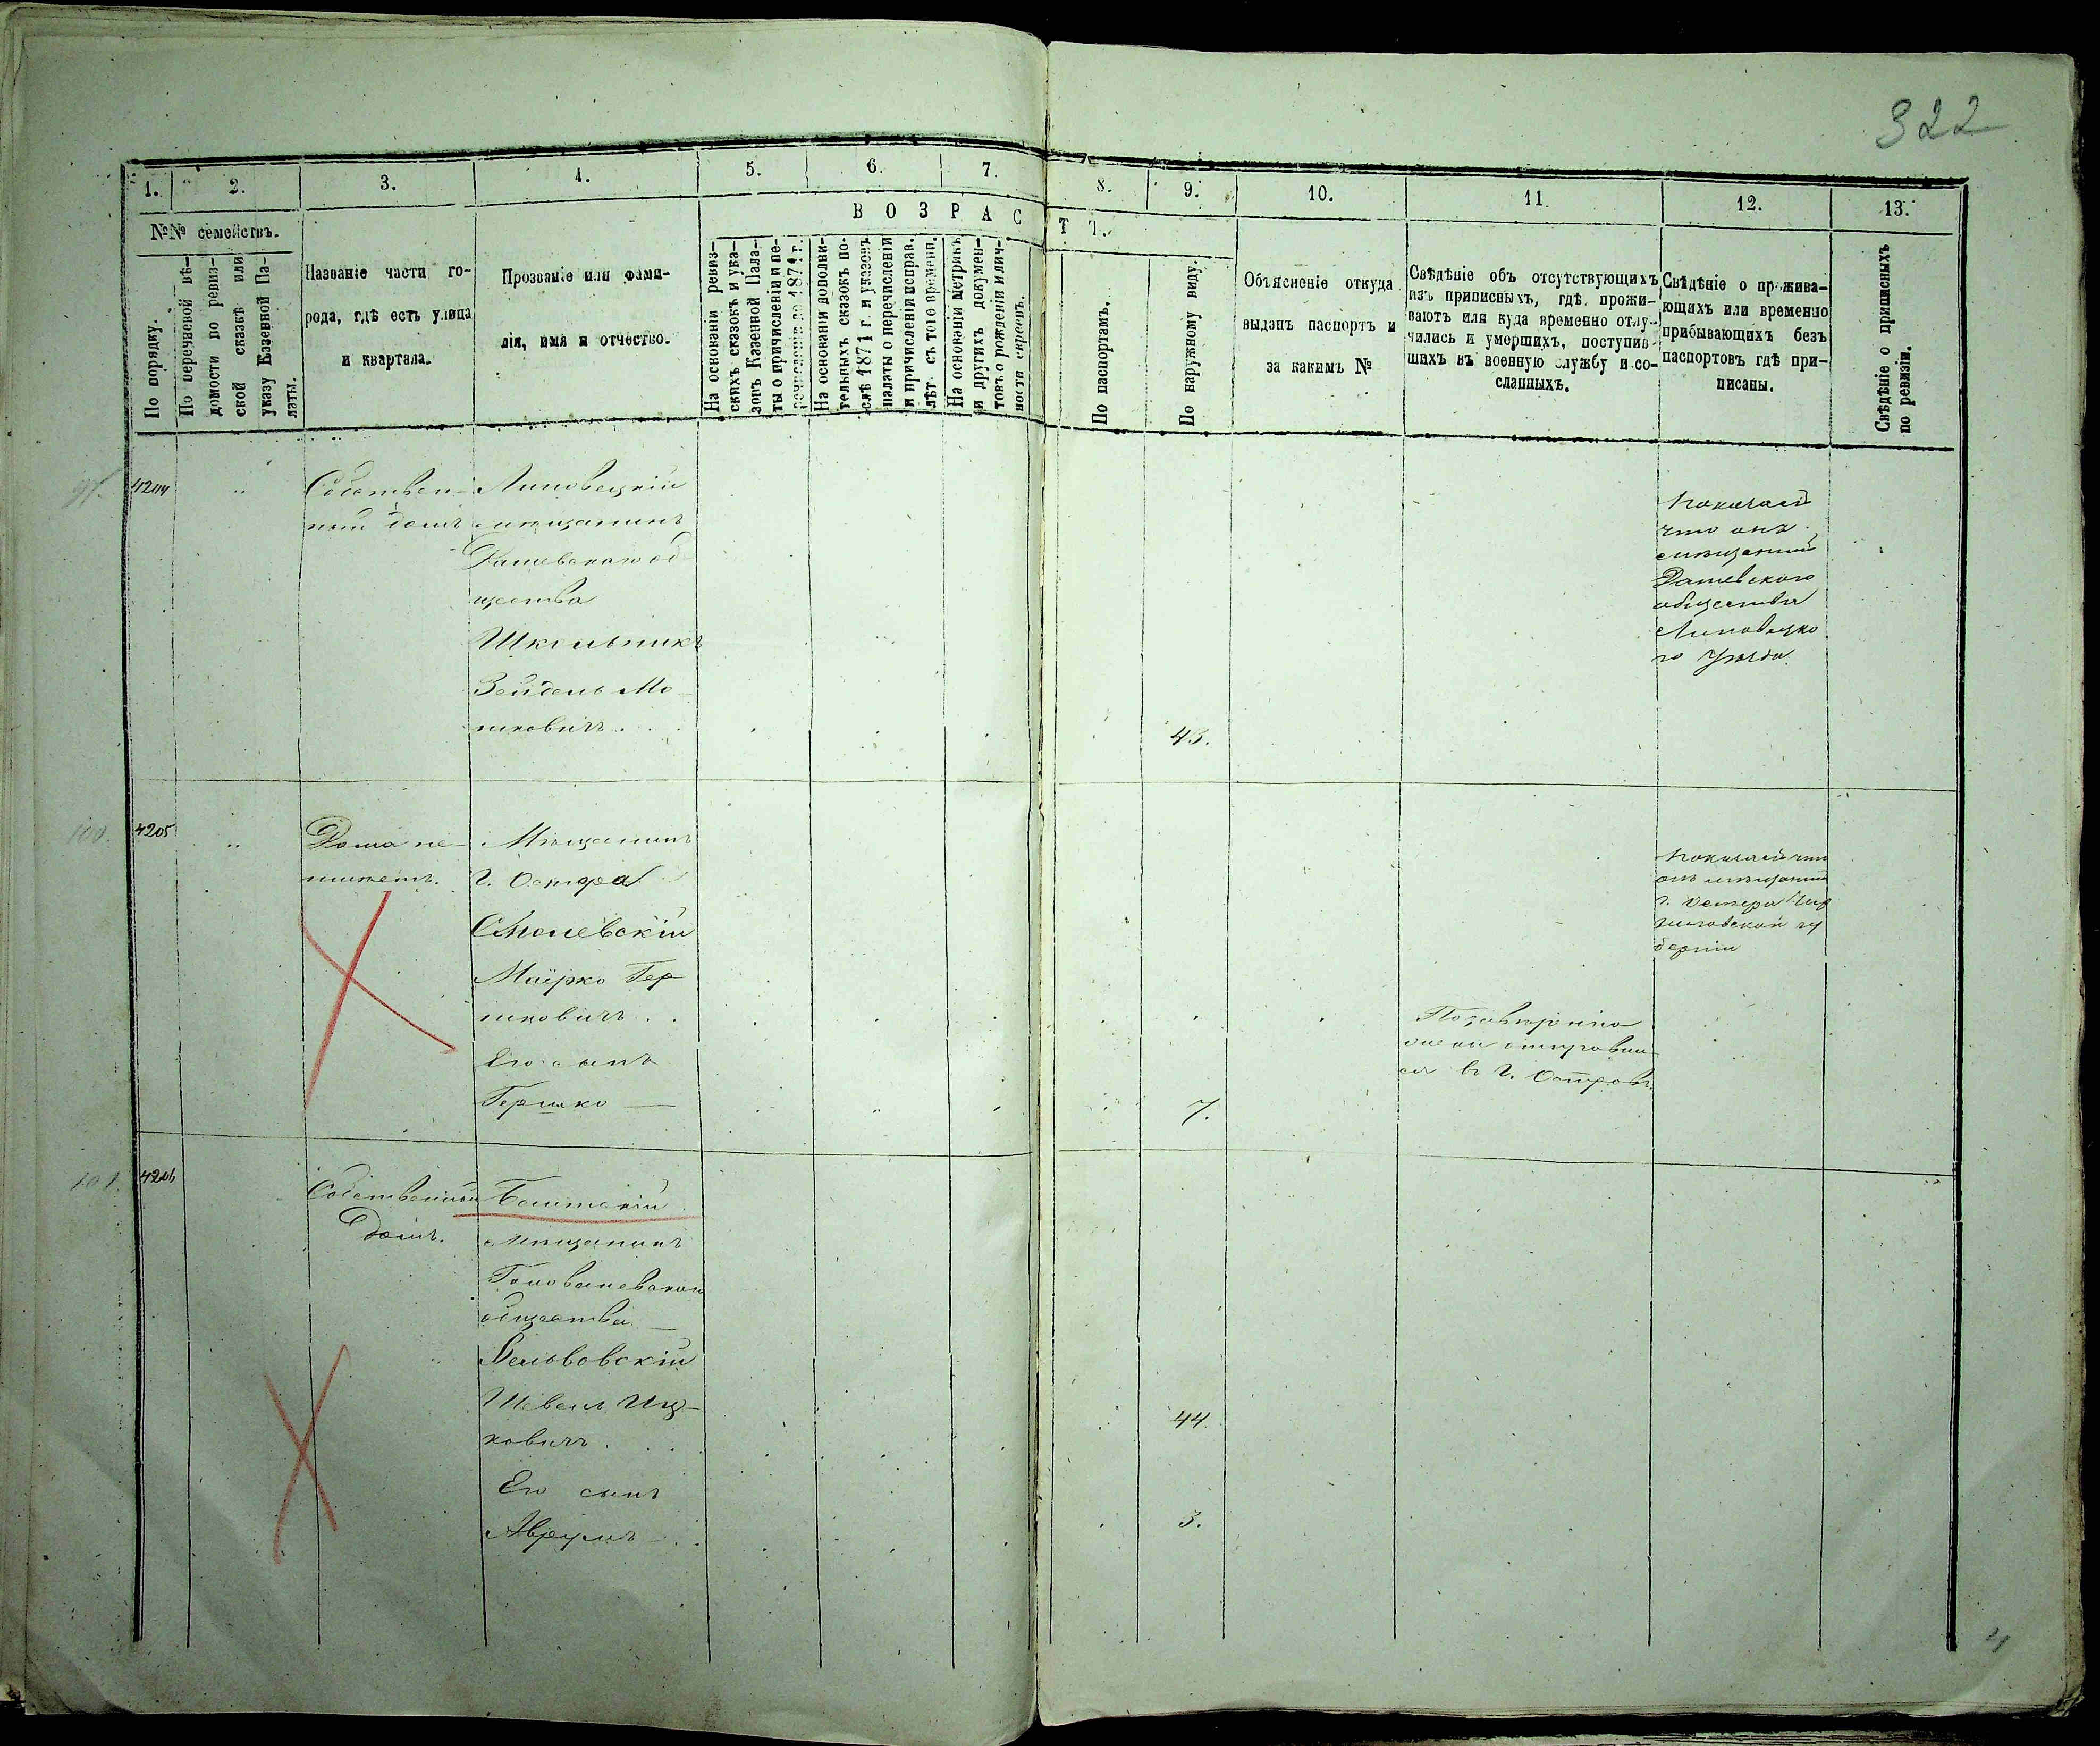 322
1. 2. 3. 4. 5. 6. 7. 8. 9. 10. 11. 12. 13.
№№ семействъ.
По порядку.
По перечневой вѣ-
домости по ревиз-
ской сказкѣ или
указу Казенной Па-
латы.
Названіе части го-
рода, гдѣ есть улица
и квартала.
Прозваніе или фами-
лія, имя и отчество.
ВОЗРАСТЪ.
На основаніи ревиз-
скихъ сказокъ и ука-
зовъ Казенной Пала-
ты о причисленіи и пе-
речисленіи до 1871 г.
На основаніи дополни-
тельныхъ сказокъ по-
слѣ 1871 г. и указовъ
палаты о перечисленіи
и причисленіи исправ.
лѣт. съ того времени.
На основаніи метрикъ
и другихъ докумен-
товъ о рожденіи и лич-
ности евреевъ.
По паспортамъ.
По наружному виду.
Объясненіе откуда
выданъ паспортъ и
за какимъ №
Свѣдѣніе объ отсутствующихъ
изъ приписныхъ, гдѣ прожи-
ваютъ или куда временно отлу-
чились и умершихъ, поступив-
шихъ въ военную службу и со-
сланныхъ.
Свѣдѣніе о прожива-
ющихъ или временно
прибывающихъ безъ
паспортовъ гдѣ при-
писаны.
Свѣдѣніе о приписныхъ
по ревизіи.
4204
Собствен-
ный домъ
Липовецкій
мѣщанинъ
Дашевскаго об-
щества
Школьникъ
Зейдель Мо-
шковичъ
43.
Показалъ
что онъ
мѣщанинъ
Дашевского
общества
Липовецко
го Уѣзда.
100.
4205
Дома не-
имѣетъ.
Мѣщанинъ
г. Остра
Смолевскій
Маіорко Гер
шковичъ
Его сынъ
Гершко
7.
въ г. Остръ
Показалъ что
онъ мѣщанинъ
г. Остера Чер
ниговской гу
берніи
101.
4206
Собственный
Домъ.
Балтскій
мѣщанинъ
Голованевскаго
общества
Бельвовскій
Шевель Иц-
ковичъ
44.
Его сынъ
Аврумъ
3.